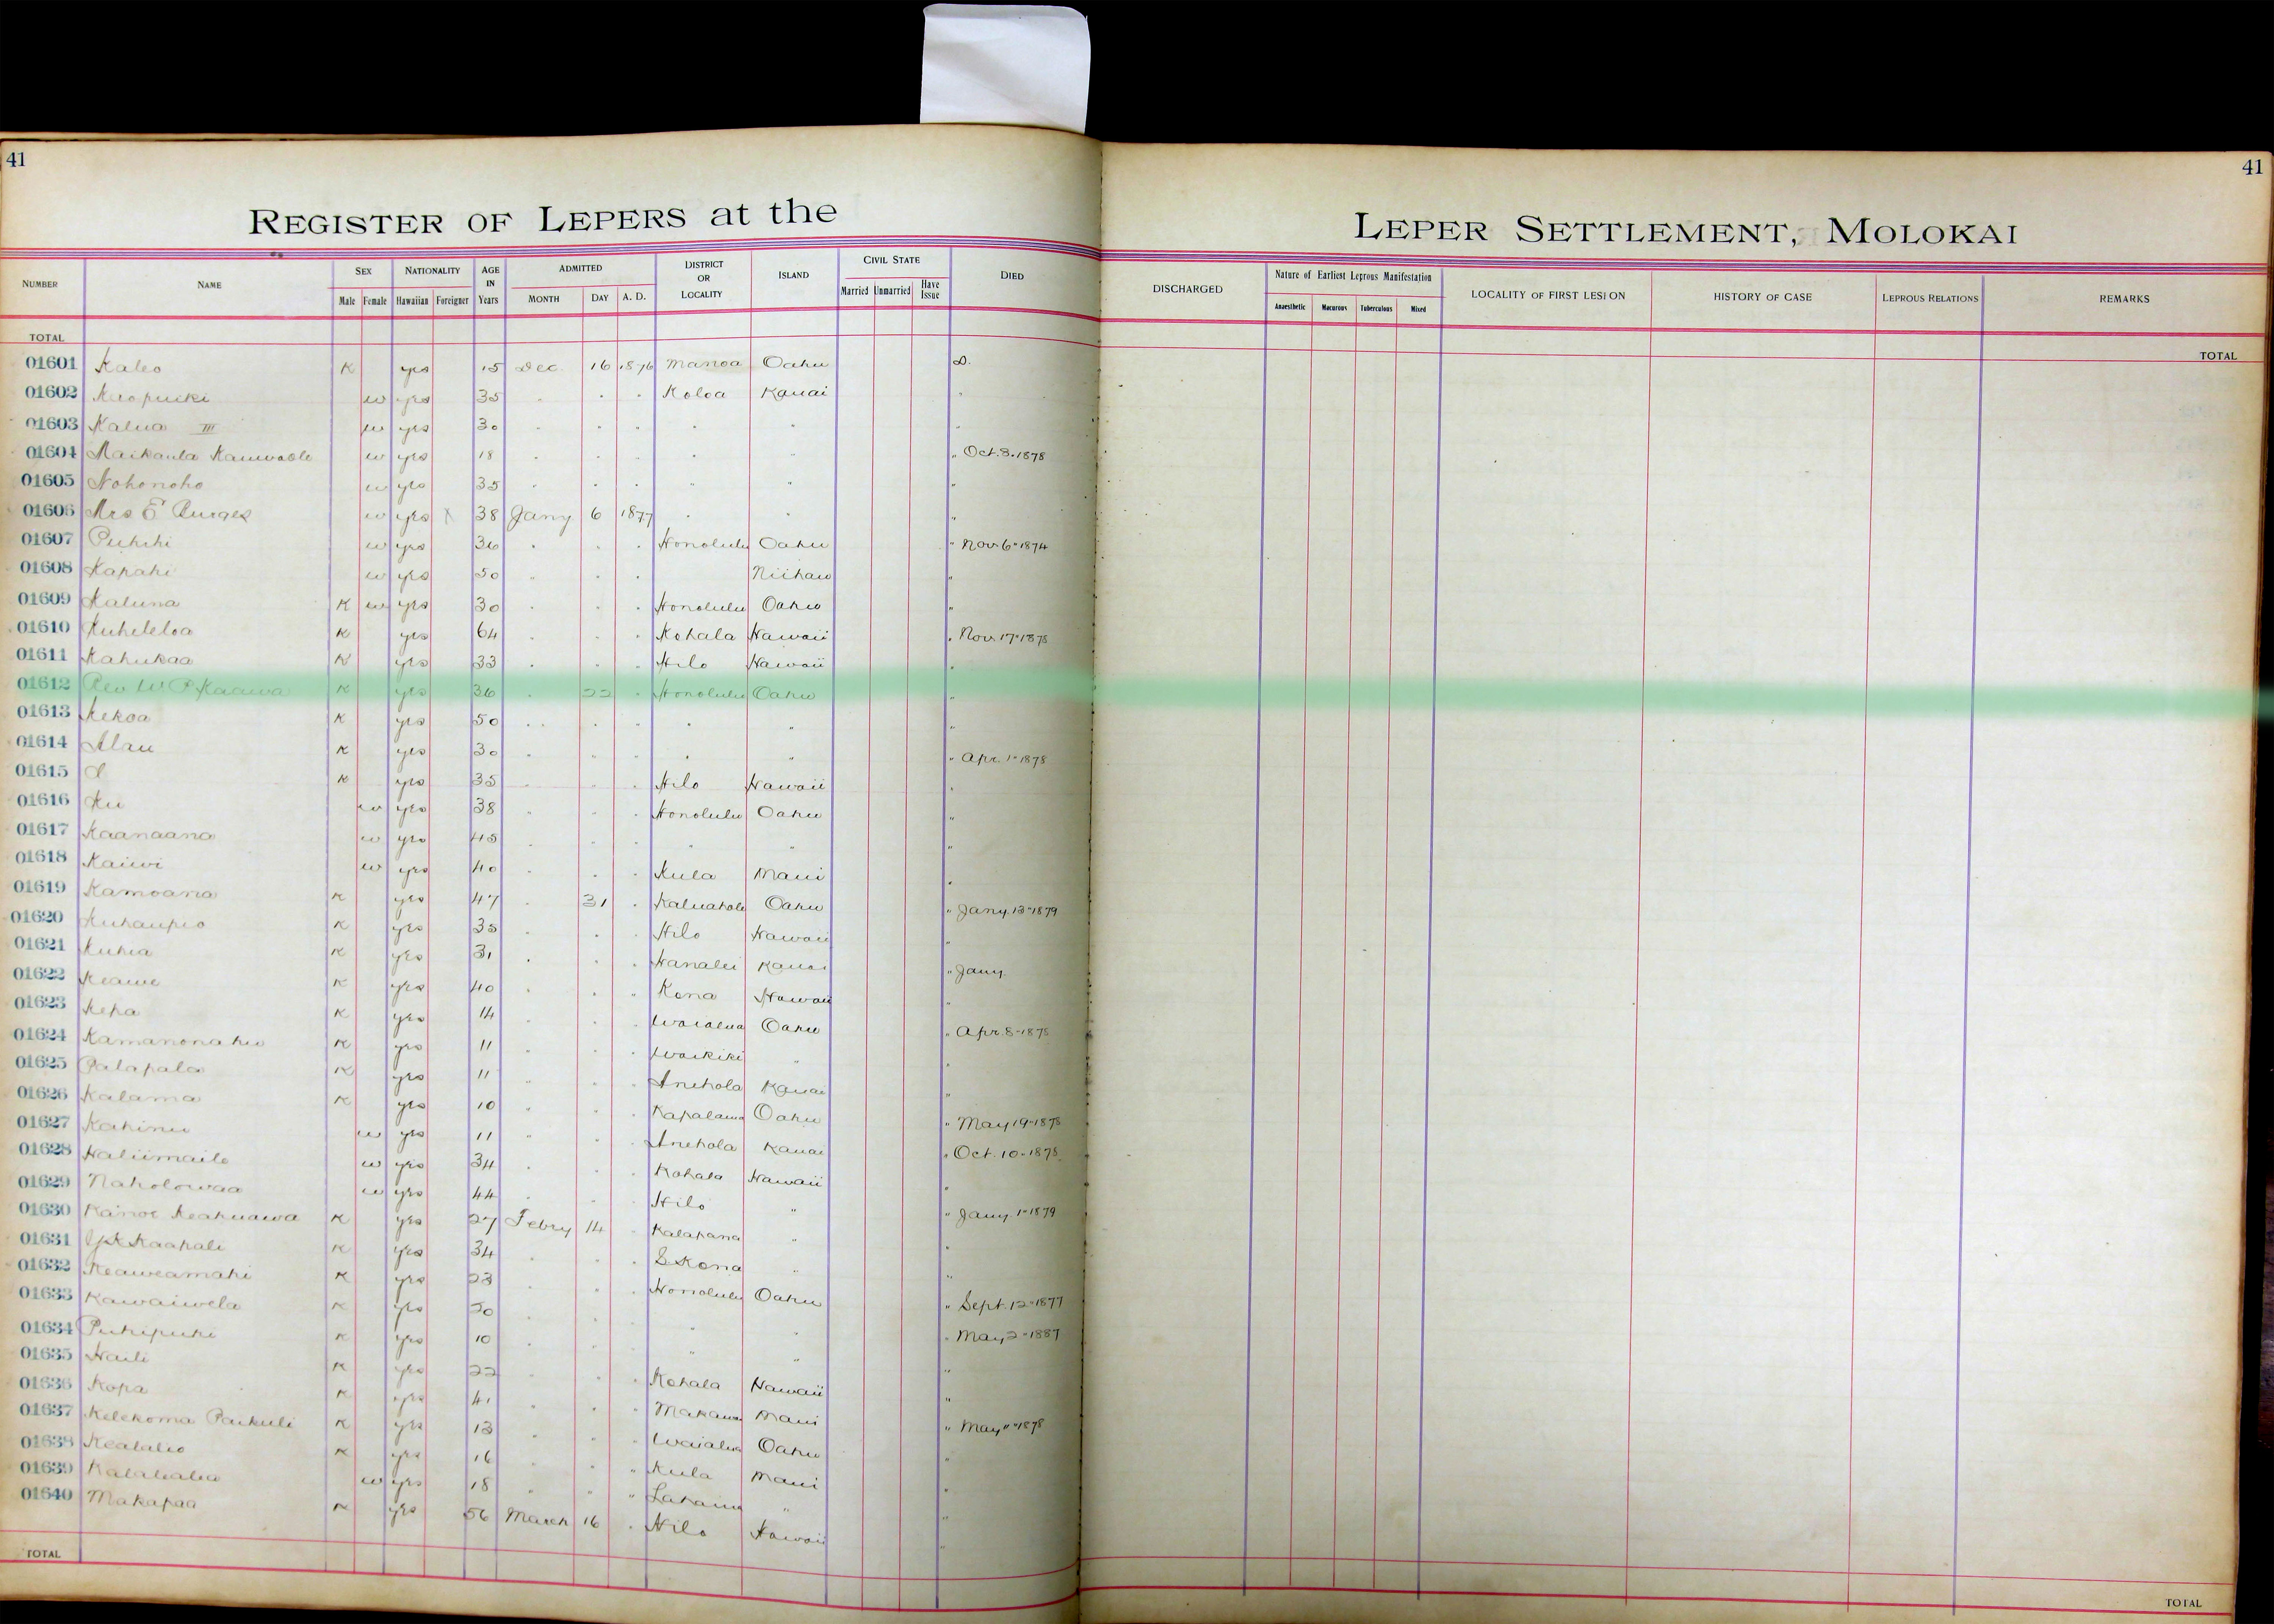 41
41
REGISTER OF LEPERS at the
LEPER SETTLEMENT, MOLOKAI
NUMBER NAME SEX NATIONALITY AGE IN Years ADMITTED DISTRICT OR LOCALITY ISLAND CIVIL STATE DIED DISCHARGED Nature of Earliest Leprous Manifestation LOCALITY OF FIRST LESION HISTORY OF CASE LEPROUS RELATIONS REMARKS
Male Female Hawaiian Foreigner MONTH DAY A. D. Married Unmarried Have Issue Anaesthetic Macurous Tuberculous Mixed
TOTAL TOTAL
01601 Kaleo K yes 15 Dec. 16 1876 Manoa Oahu D.
01602 w yes 35 " " " Koloa Kauai "
01603 Kalua III w yes 30 " " " " " "
01604 Maikaula w yes 18 " " " " " " Oct. 3. 1878
01605 Nohonoho w yes 35 " " " " " "
01606 Mrs E Burges w yes X 38 Jany 6 1877 " " "
01607 Puhihi w yes 36 " " " Honolulu Oahu " Nov 6 - 1874
01608 Kapahi w yes 50 " " " Niihau "
01609 Kaluna K w yes 30 " " " Honolulu Oahu "
01610 Kuheleloa K yes 64 " " " Kohala Hawaii " Nov 17 - 1878
01611 Kahukaa K yes 33 " " " Hilo Hawaii "
01612 Rev W P Kaawa K yes 36 " 22 " Honolulu Oahu "
01613 Kekoa K yes 50 " " " " " "
01614 Alau K yes 30 " " " " " " Apr. 1 - 1878
01615 K yes 35 " " " Hilo Hawaii "
01616 Ku w yes 38 " " " Honolulu Oahu "
01617 Kaanaana w yes 45 " " " " " "
01618 Kaiwi w yes 40 " " " Kula Maui "
01619 Kamoana K yes 47 " 31 " Kaluahole Oahu " Jany. 13 - 1879
01620 Kuhaupio K yes 35 " " " Hilo Hawaii "
01621 Kuhia K yes 31 " " " Hanalei Kauai " Jany.
01622 Keawe K yes 40 " " " Kona Hawaii "
01623 Kepa K yes 14 " " " Waialua Oahu " Apr. 8 - 1878
01624 Kamanonahu K yes 11 " " " Waikiki " "
01625 Palapala K yes 11 " " " Anehola Kauai "
01626 Kalama K yes 10 " " " Kapalama Oahu " May 19 - 1878
01627 Kahinu w yes 11 " " " Anehola Kauai " Oct. 10 - 1878
01628 Haliimaile w yes 34 " " " Kohala Hawaii "
01629 Naholowaa w yes 44 " " " Hilo " " Jany. 1 - 1879
01630 Kainoe Keahuawa K yes 27 Febry 14 " Kalapana " "
01631 Kaapale K yes 34 " " " S Kona " "
01632 Keaweamahi K yes 23 " " " Honolulu Oahu " Sept. 12 - 1877
01633 Kawaiwela K yes 20 " " " " " " May 2 - 1887
01634 Puhipuhi K yes 10 " " " " " "
01635 Haili K yes 22 " " " Kohala Hawaii "
01636 Kopa K yes 41 " " " Makawao Maui " May 11 - 1878
01637 Kelekoma Paikuli K yes 13 " " " Waialua Oahu "
01638 Kealalio K yes 16 " " " Kula Maui "
01639 w yes 18 " " " Lahaina " "
01640 Makapaa K yes 56 March 16 " Hilo Hawaii "
TOTAL TOTAL